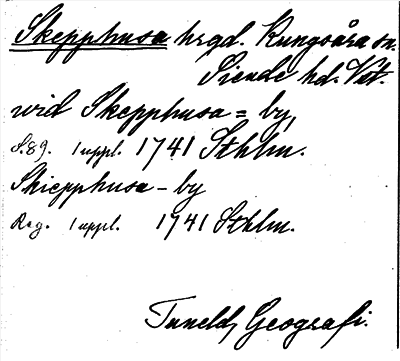 Skepphusa hrgd. Kungsåra sn.
Siende hd. Vst.
wid Skepphusa = by,
S.89. 1 uppl. 1741 Sthlm.
Skiepphusa - by
Reg. 1 uppl. 1741 Sthlm.
Tuneld, Geografi.